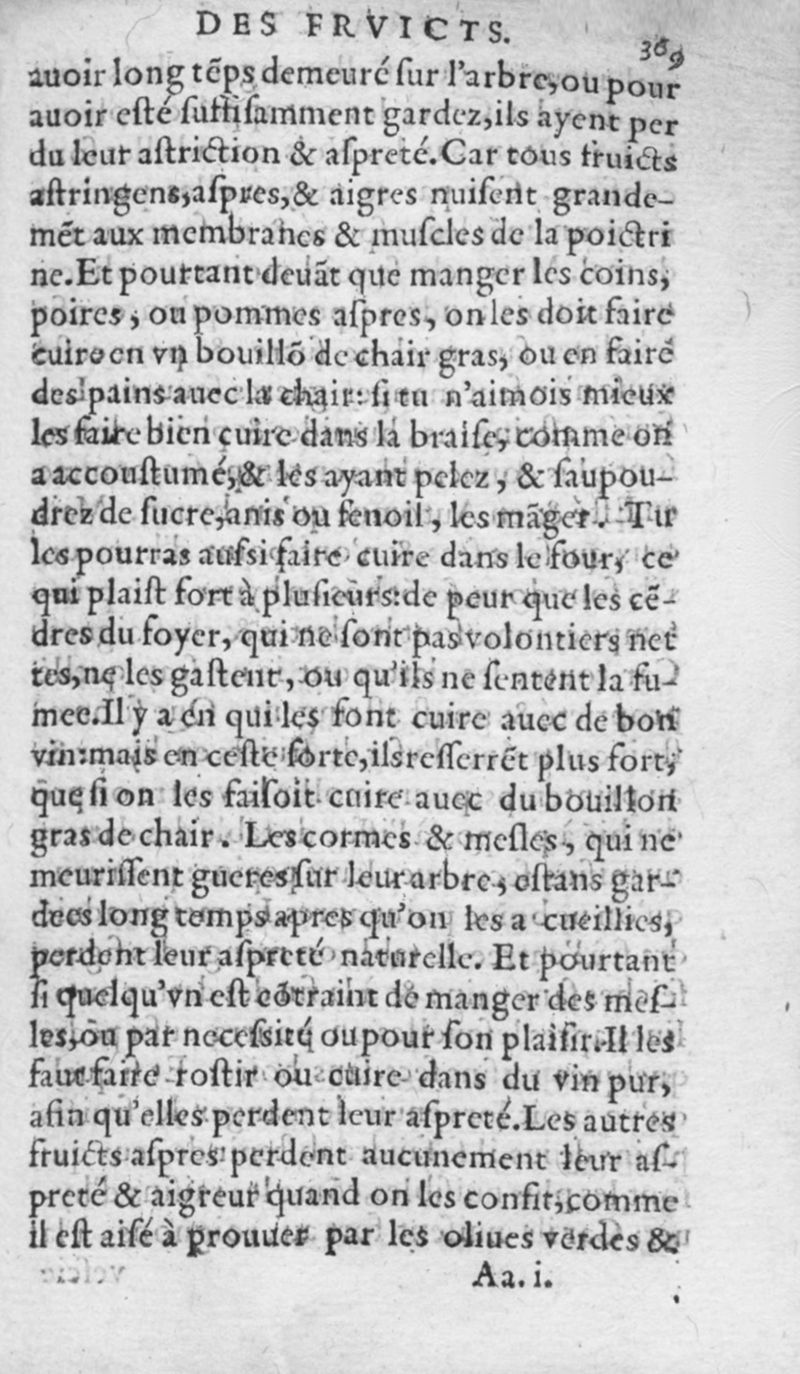 DES FRVICTS.
369
auoir long tẽps demeuré ſur l'arbre, ou pour
auoir eſté ſuffiſamment gardez, ils ayent per
du leur aſtriction & aſpreté. Car tous fruicts
aſtringens, aſpres, & aigres nuiſent grande-
mẽt aux membranes & muſcles de la poictri
ne. Et pourtant deuãt que manger les coins,
poires, ou pommes aſpres, on les doit faire
cuire en vn bouillõ de chair gras, ou en faire
des pains auec la chair: ſi tu n'aimois mieux
les faire bien cuire dans la braiſe, comme on
a accouſtumé, & les ayant pelez, & ſaupou-
drez de ſucre, anis ou fenoil, les mãger. Tu
les pourras auſsi faire cuire dans le four, ce
qui plaiſt fort à pluſieurs: de peur que les cẽ-
dres du foyer, qui ne ſont pas volontiers net
tes, ne les gaſtent, ou qu'ils ne ſentent la fu-
mee. Il y a en qui les font cuire auec de bon
vin: mais en ceſte ſorte, ils reſſerrẽt plus fort,
que ſi on les faiſoit cuire auec du bouillon
gras de chair. Les cormes & meſles, qui ne
meuriſſent gueres ſur leur arbre, eſtans gar-
dees long temps apres qu'on les a cueillies,
perdent leur aſpreté naturelle. Et pourtant
ſi quelqu'vn eſt cõtraint de manger des meſ-
les, ou par neceſsité ou pour ſon plaiſir. Il les
faut faire roſtir ou cuire dans du vin pur,
afin qu'elles perdent leur aſpreté. Les autres
fruicts aſpres perdent aucunement leur aſ-
preté & aigreur quand on les confit, comme
il eſt aiſé à prouuer par les oliues verdes &
Aa. i.